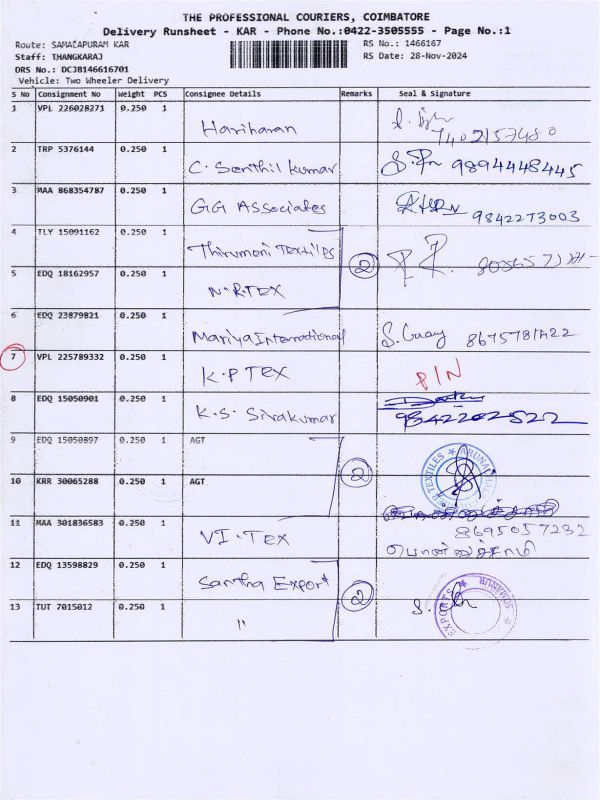 THE PROFESSIONAL COURIERS, COIMBATORE
Delivery Runsheet - KAR - Phone No.:0422-3505555 - Page No.:1
Route: SAMALAPURAM KAR
RS No.: 1466167
Staff: THANGKARAJ
RS Date: 28-Nov-2024
DRS No.: DCJB146616701
Vehicle: Two Wheeler Delivery
S No Consignment No Weight PCS Consignee Details Remarks Seal & Signature
1 VPL 226028271 0.250 1 Hariharan 7402157480
2 TRP 5376144 0.250 1 C. Senthil kumar 9894448445
3 MAA 868354787 0.250 1 GG Associates 9842273003
4 TLY 15091162 0.250 1 Thirumoni Textiles 2
5 EDQ 18162957 0.250 1 N.R.TEX
6 EDQ 23879821 0.250 1 Mariya International 8675781422
7 VPL 225789332 0.250 1 K.P TEX P/N
8 EDQ 15050901 0.250 1 K.S. Sivakumar 9842202522
9 EDQ 15050897 0.250 1 AGT 2
10 KRR 30065288 0.250 1 AGT
11 MAA 301836583 0.250 1 VI.TEX 8695057232
பொன்னுச்சாமி
12 EDQ 13598829 0.250 1 Santha Export 2
13 TUT 7015012 0.250 1 "
EXPORTS